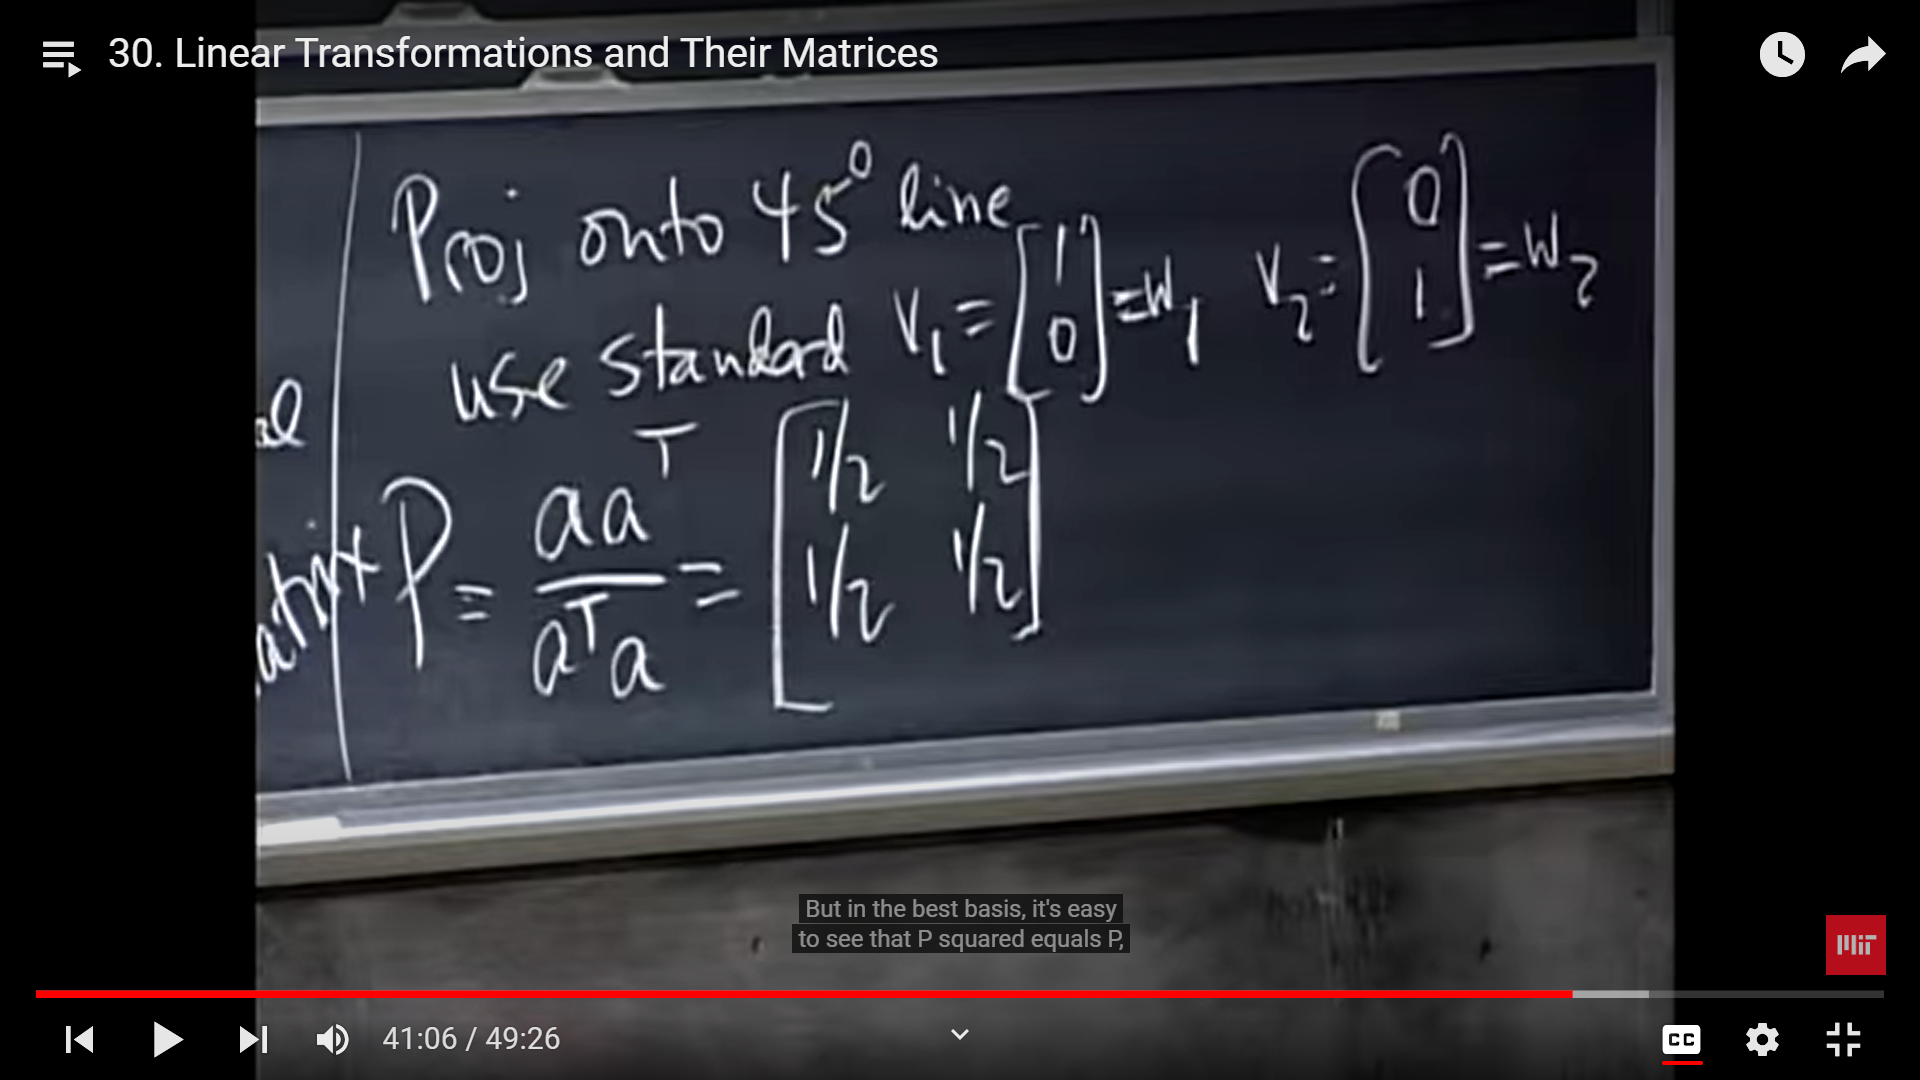 30. Linear Transformations and Their Matrices
Proj onto 45° line
use standard v₁ = [1 0] = w₁ v₂ = [0 1] = w₂
al
atrix P = aaᵀ / aᵀa = [1/2 1/2
1/2 1/2]
But in the best basis, it's easy
to see that P squared equals P,
MIT
41:06 / 49:26
CC